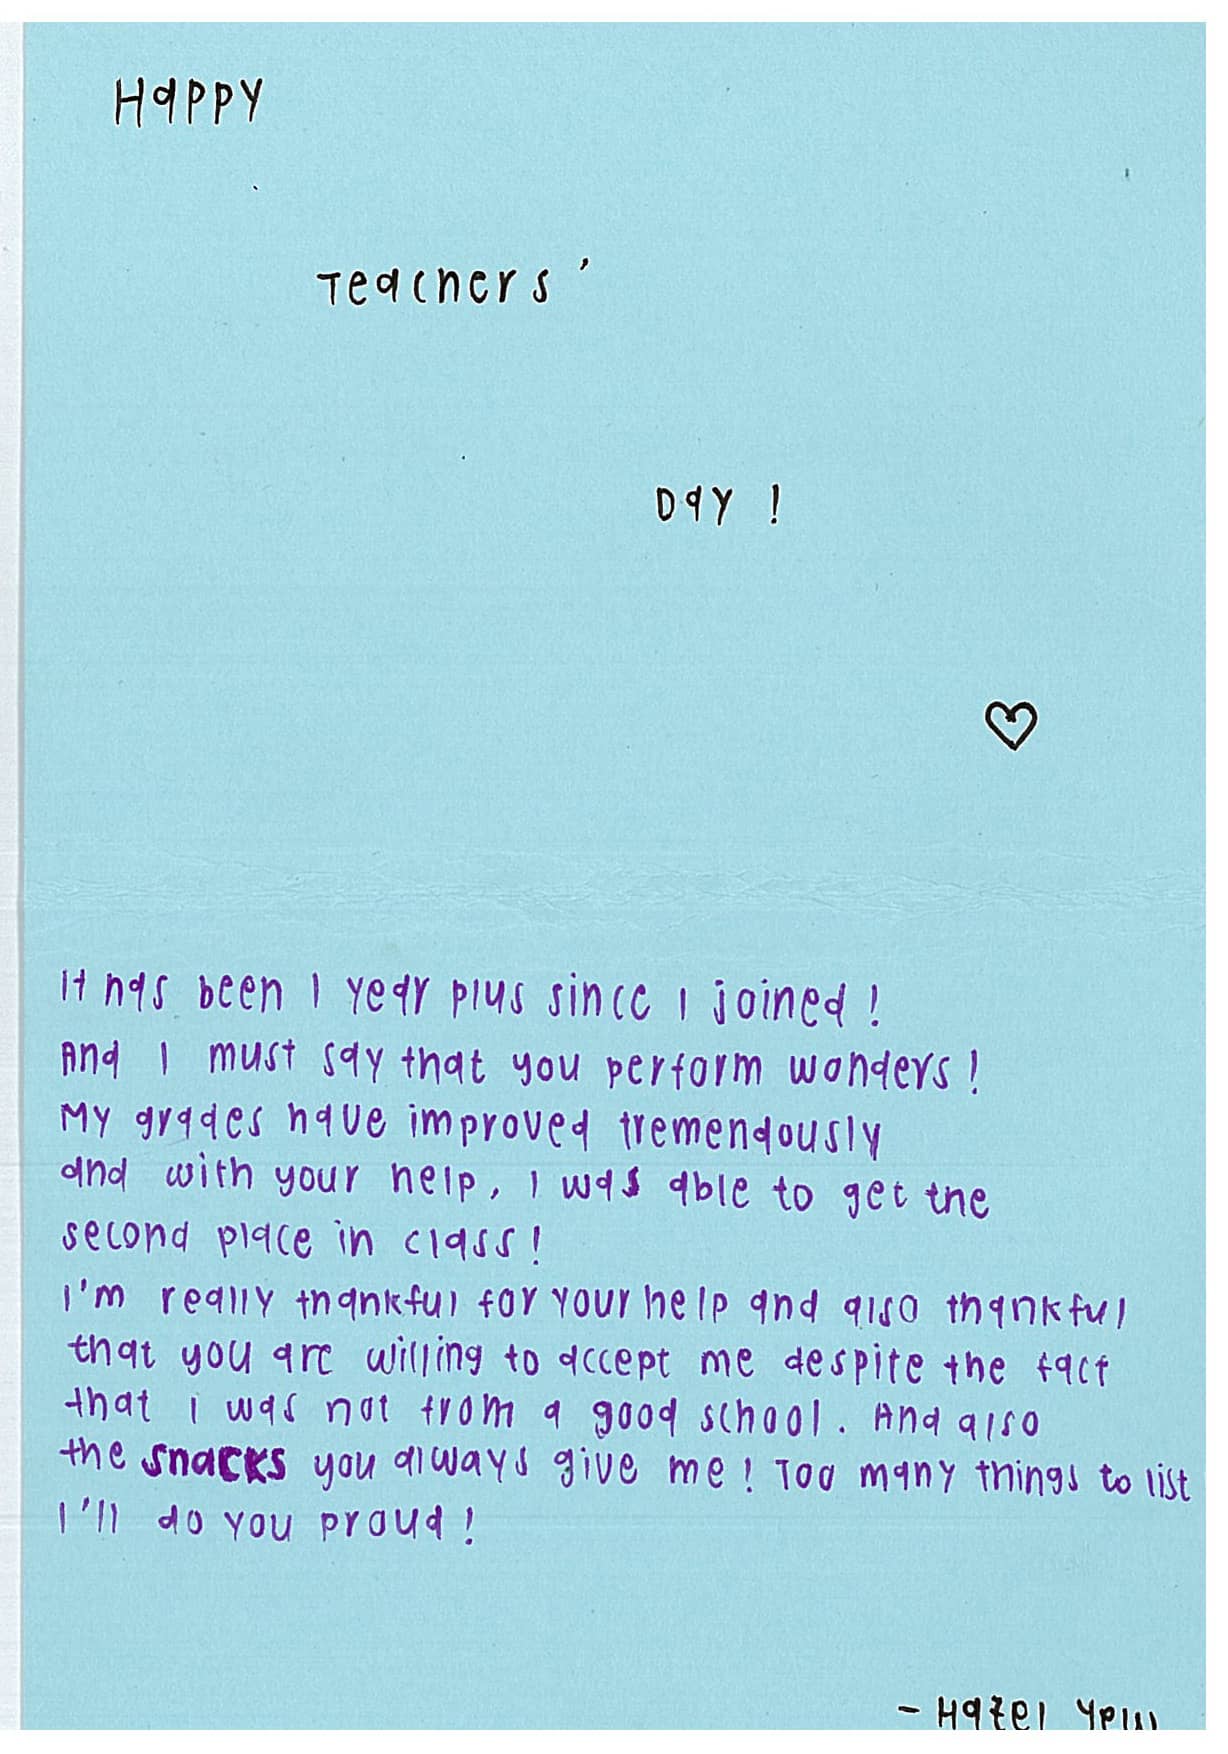 Happy
Teachers'
Day !
It has been 1 year plus since I joined !
And I must say that you perform wonders !
My grades have improved tremendously
and with your help, I was able to get the
second place in class !
I'm really thankful for your help and also thankful
that you are willing to accept me despite the fact
that I was not from a good school. And also
the snacks you always give me ! Too many things to list
I'll do you proud !
- Hazel Yew